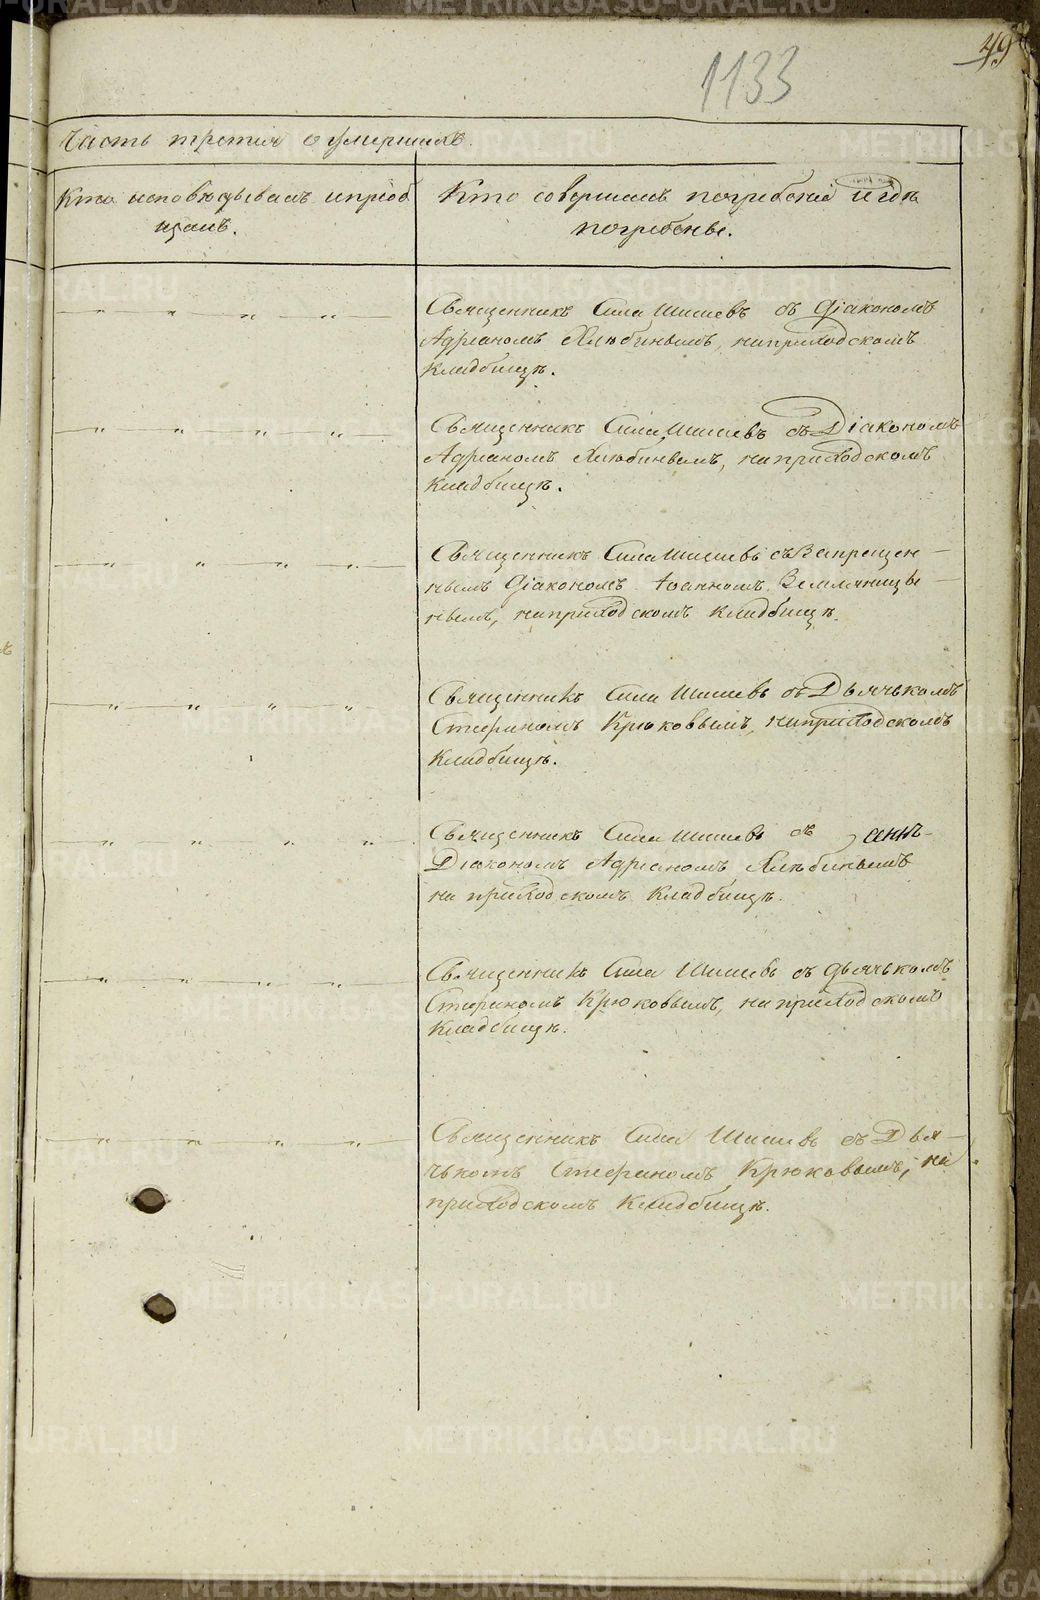 49
1133
Часть третия о умершихъ.
Кто исповѣдывалъ и приоб
щалъ.
Кто совершалъ погребенiе и гдѣ
погребены.
Священникъ Сила Шишевъ съ Дiакономъ
Адрiаномъ Хлѣбинымъ, на приходскомъ
кладбищѣ.
Священникъ Сила Шишевъ съ Дiакономъ
Адрiаномъ Хлѣбинымъ, на приходскомъ
кладбищѣ.
Священникъ Сила Шишевъ съ Запрещен-
нымъ Дiакономъ Iоанномъ Земляницы-
нымъ, на приходскомъ кладбищѣ.
Священникъ Сила Шишевъ съ Дьячькомъ
Стефаномъ Крюковымъ, на приходскомъ
кладбищѣ.
Священникъ Сила Шишевъ съ
Дiакономъ Адрiаномъ Хлѣбинымъ
на приходскомъ кладбищѣ.
Священникъ Сила Шишевъ съ дьячькомъ
Стефаномъ Крюковымъ, на приходскомъ
кладбищѣ.
Священникъ Сила Шишевъ съ Дья-
чькомъ Стефаномъ Крюковымъ, на
приходскомъ кладбищѣ.
METRIKI.GASO-URAL.RU